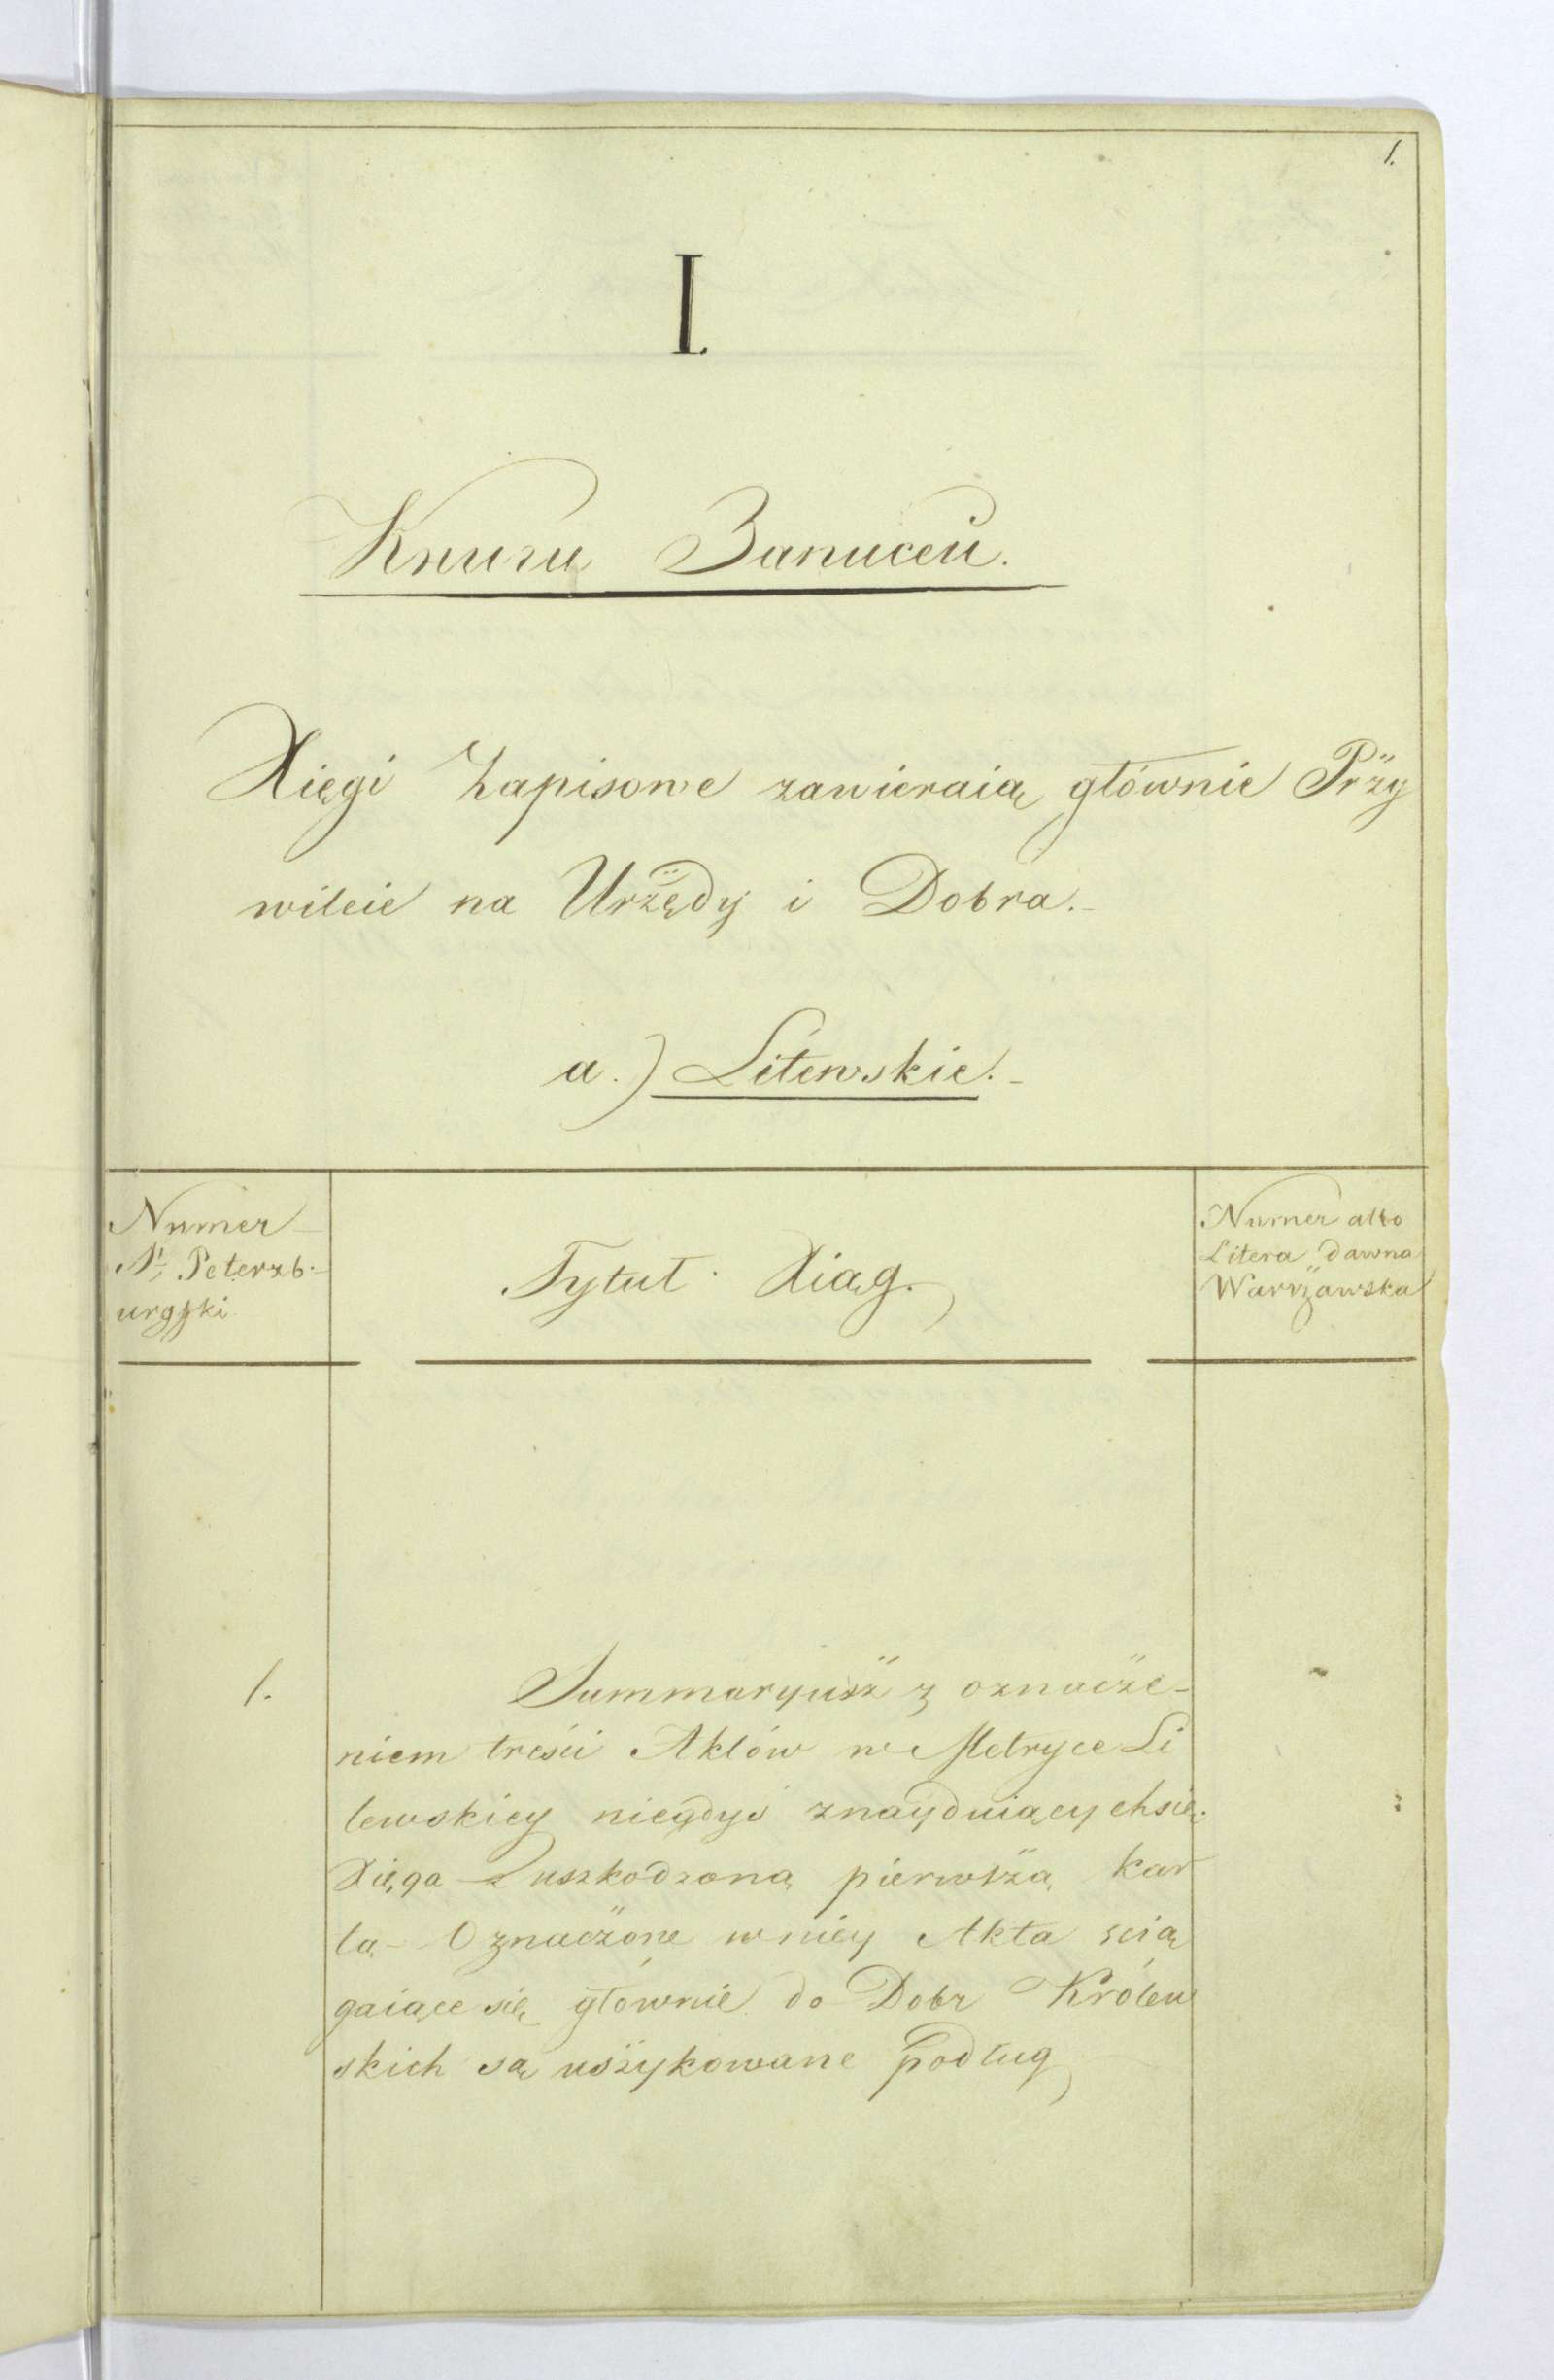 1.
I.
Книги Записей.
Xięgi Zapisowe zawieraią głównie Przy
wileie na Urzędy i Dobra.-
a.) Litewskie.-
Numer
St Peterzb-
urgski
Tytuł Xiąg.
Numer albo
Litera dawna
Warszawska
1.
Summaryusz z oznacze-
niem treści Aktów w Metryce Li
tewskiey niegdyś znayduiących się.
Xięga z uszkodzoną pierwszą kar
tą- Oznaczone w niey Akta ścią
gaiące się głównie do Dobr Królew
skich są uszykowane podług